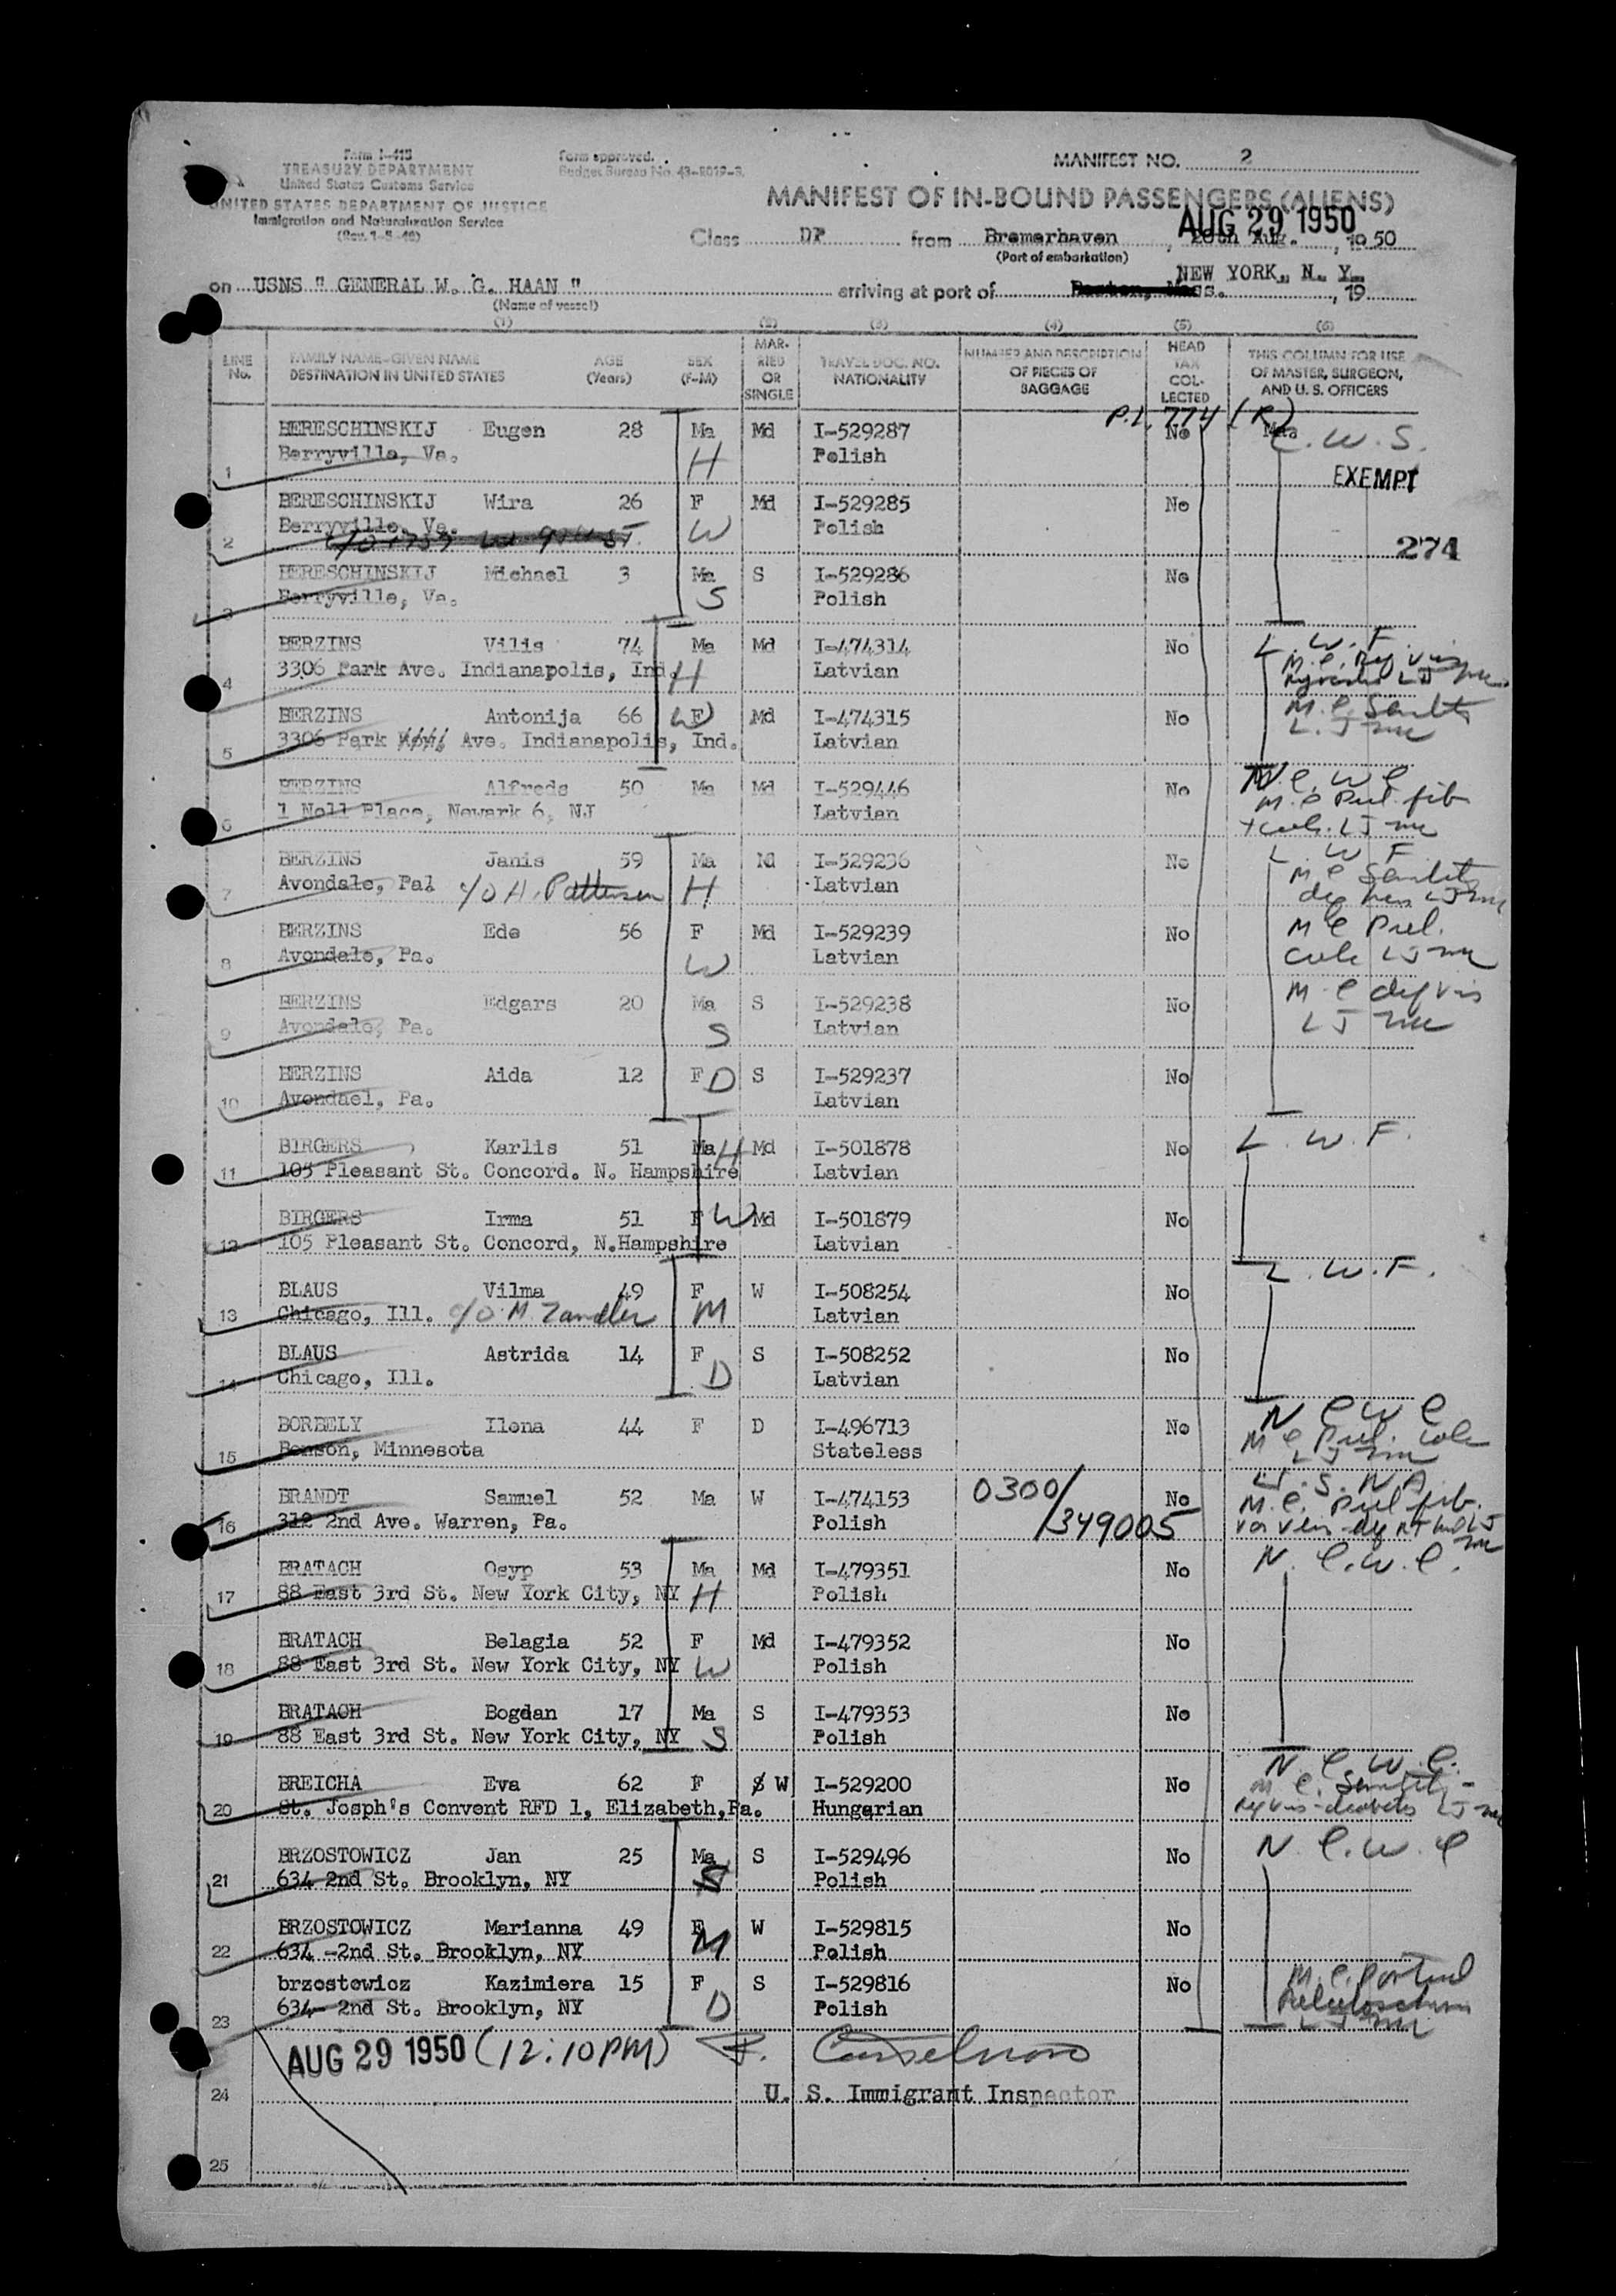 Form I-415
TREASURY DEPARTMENT
United States Customs Service
UNITED STATES DEPARTMENT OF JUSTICE
Immigration and Naturalization Service
(Rev. 1-5-48)
Form approved.
Budget Bureau No. 43-R019-3.
MANIFEST NO. 2
MANIFEST OF IN-BOUND PASSENGERS (ALIENS)
AUG 29 1950
Class DP from Bremerhaven , Aug. , 19 50
(Port of embarkation)
NEW YORK, N. Y.
on USNS " GENERAL W. G. HAAN " arriving at port of Boston, Mass. , 19
(Name of vessel)
(1) (2) (3) (4) (5) (6)
LINE No. FAMILY NAME—GIVEN NAME DESTINATION IN UNITED STATES AGE (Years) SEX (F-M) MARRIED OR SINGLE TRAVEL DOC. NO. NATIONALITY NUMBER AND DESCRIPTION OF PIECES OF BAGGAGE HEAD TAX COLLECTED THIS COLUMN FOR USE OF MASTER, SURGEON, AND U. S. OFFICERS
P.L. 774 (R)
BERESCHINSKIJ Eugen 28 Ma Md I-529287 No C.W.S.
1 Berryville, Va. H Polish EXEMPT
BERESCHINSKIJ Wira 26 F Md I-529285 No
2 Berryville, Va. W Polish 274
BERESCHINSKIJ Michael 3 Ma S I-529286 No
3 Berryville, Va. S Polish
BERZINS Vilis 74 Ma Md I-474314 No L.W.F.
4 3306 Park Ave. Indianapolis, Ind. H Latvian
BERZINS Antonija 66 W F Md I-474315 No
5 3306 Park Ave. Indianapolis, Ind. Latvian
BERZINS Alfreds 50 Ma Md I-529446 No N.C.W.C
6 1 Noll Place, Newark 6, NJ Latvian
BERZINS Janis 59 Ma Md I-529236 No L.W.F
7 Avondale, Pa. c/o H. Patterson H Latvian
BERZINS Ede 56 F Md I-529239 No
8 Avondale, Pa. W Latvian
BERZINS Edgars 20 Ma S I-529238 No
9 Avondale, Pa. S Latvian
BERZINS Aida 12 F D S I-529237 No
10 Avondael, Pa. Latvian
BIRGERS Karlis 51 Ma H Md I-501878 No L.W.F.
11 105 Pleasant St. Concord. N. Hampshire Latvian
BIRGERS Irma 51 F W Md I-501879 No
12 105 Pleasant St. Concord, N.Hampshire Latvian
BLAUS Vilma 49 F W I-508254 No L.W.F.
13 Chicago, Ill. c/o M. Zandler M Latvian
BLAUS Astrida 14 F S I-508252 No
14 Chicago, Ill. D Latvian
BORBELY Ilona 44 F D I-496713 No N C W C
15 Benson, Minnesota Stateless
BRANDT Samuel 52 Ma W I-474153 0300/ No U.S.N.A.
16 312 2nd Ave. Warren, Pa. Polish /349005
BRATACH Osyp 53 Ma Md I-479351 No N.C.W.C.
17 88 East 3rd St. New York City, NY H Polish
BRATACH Belagia 52 F Md I-479352 No
18 88 East 3rd St. New York City, NY W Polish
BRATACH Bogdan 17 Ma S I-479353 No
19 88 East 3rd St. New York City, NY S Polish
BREICHA Eva 62 F W I-529200 No N.C.W.C.
20 St. Josph's Convent RFD 1, Elizabeth,Pa. Hungarian
BRZOSTOWICZ Jan 25 Ma S I-529496 No N.C.W.C
21 634 2nd St. Brooklyn, NY S Polish
BRZOSTOWICZ Marianna 49 F W I-529815 No
22 634 -2nd St. Brooklyn, NY M Polish
brzostowicz Kazimiera 15 F S I-529816 No
23 634- 2nd St. Brooklyn, NY D Polish
AUG 29 1950 (12:10PM)
24 U. S. Immigrant Inspector
25